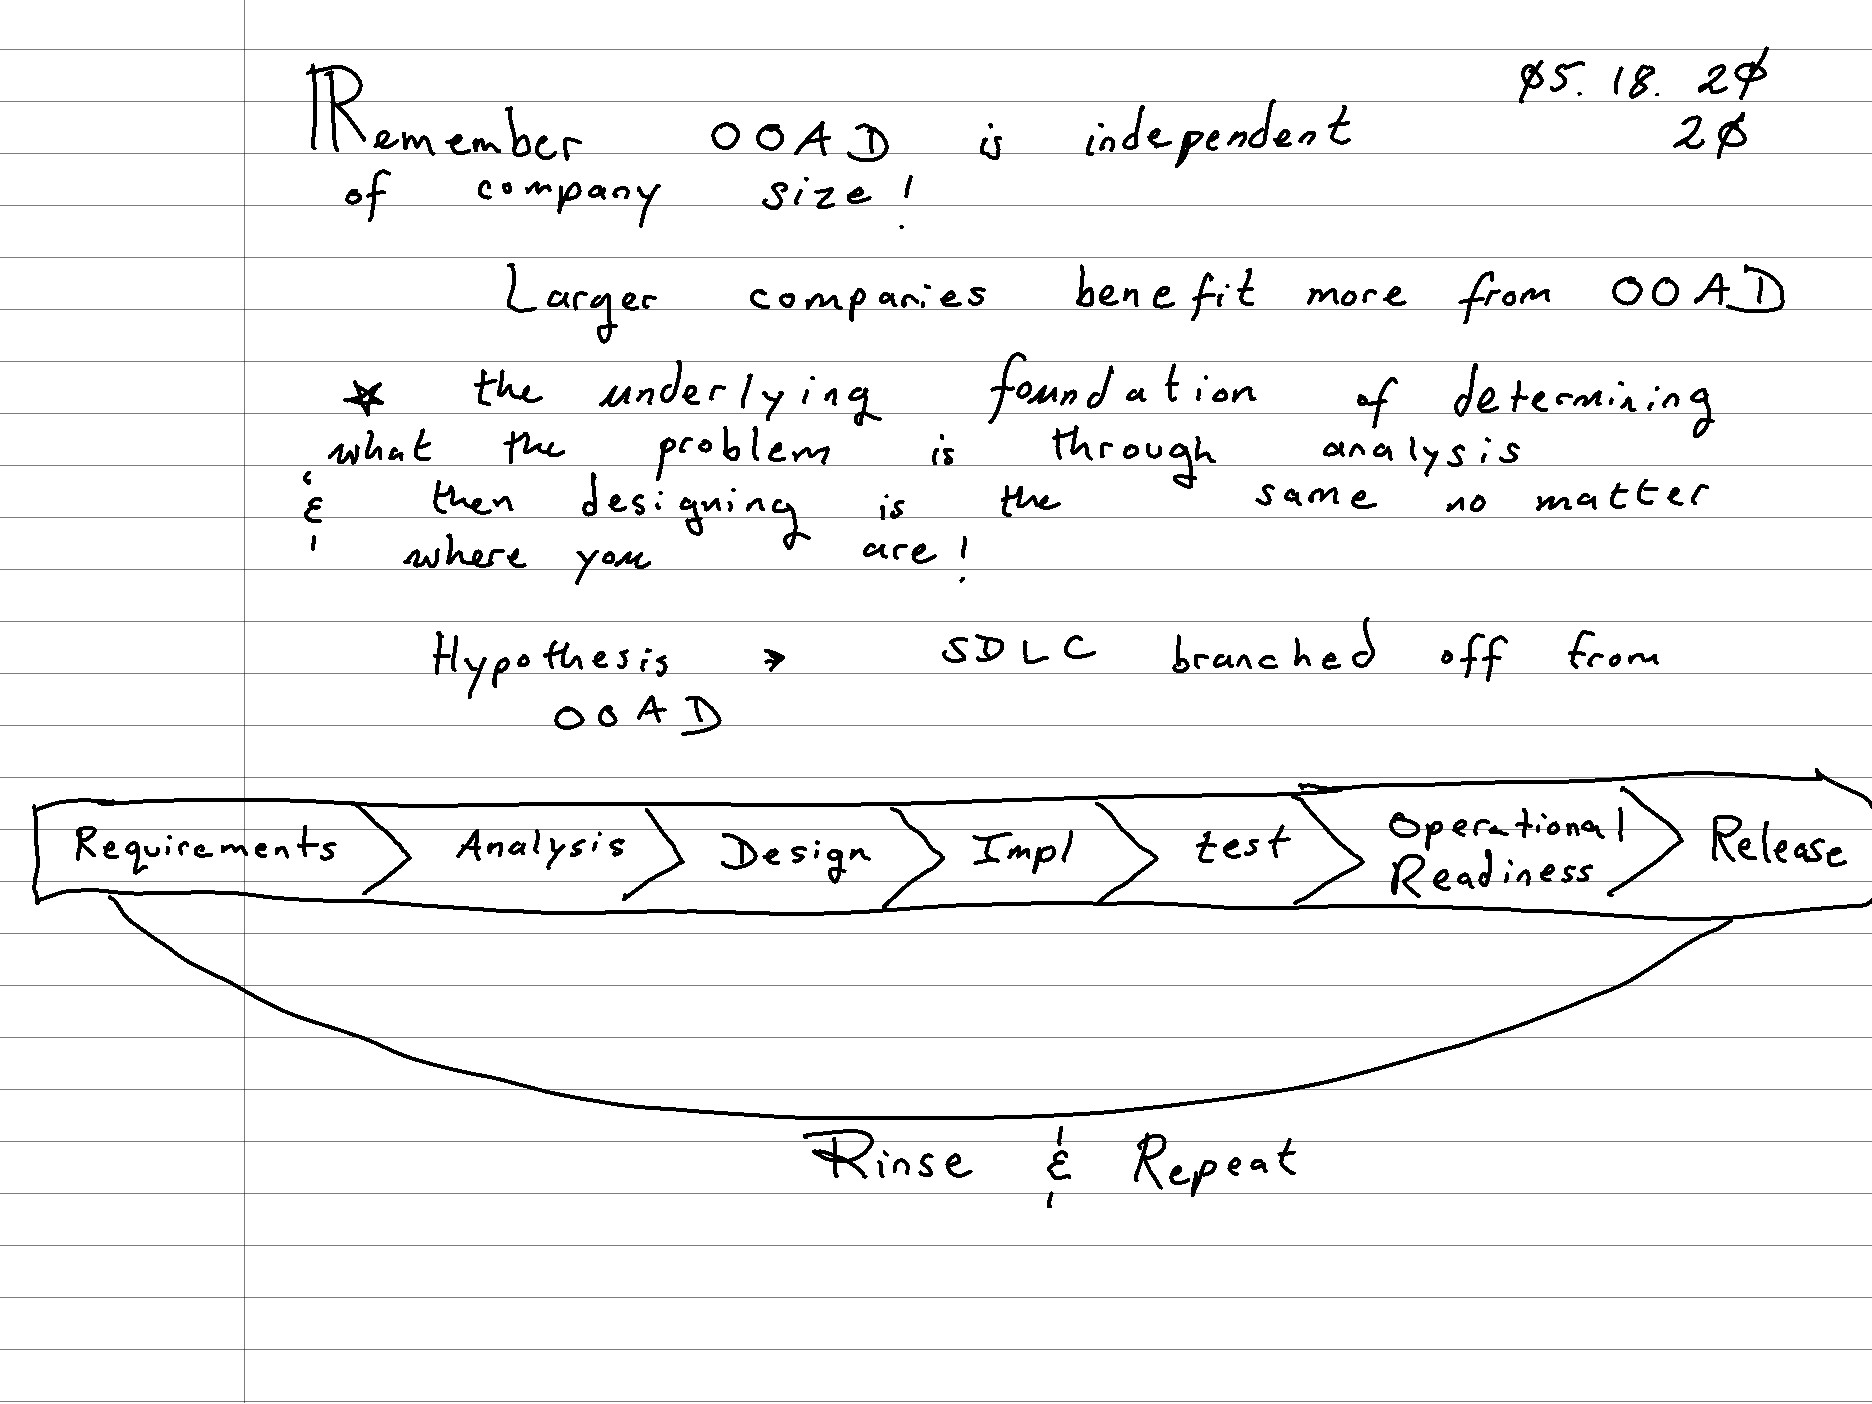 Remember OOAD is independent
Ø5. 18. 2Ø
2Ø
of company size!
Larger companies benefit more from OOAD
★ the underlying foundation of determining
what the problem is through analysis
& then designing is the same no matter
where you are!
Hypothesis → SDLC branched off from
OOAD
Requirements Analysis Design Impl test Operational Readiness Release
Rinse & Repeat